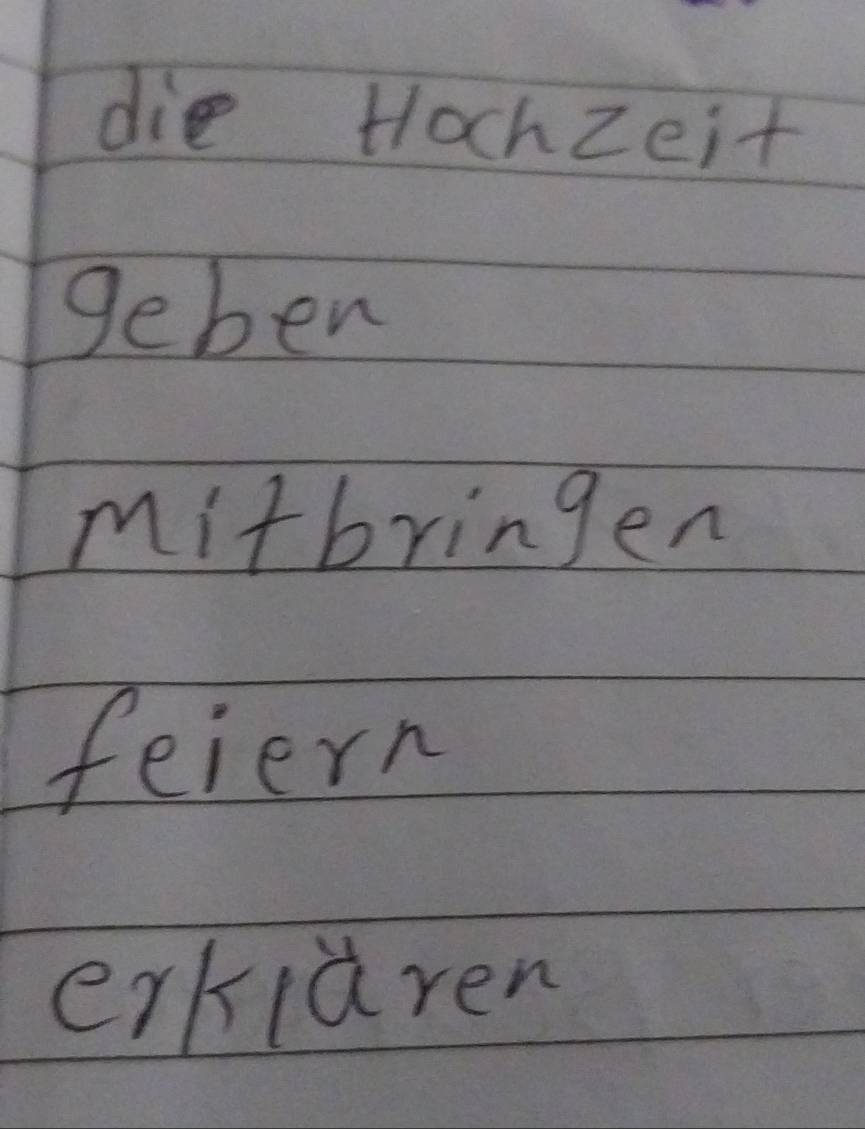 die Hochzeit
geben
mitbringen
feiern
erklären